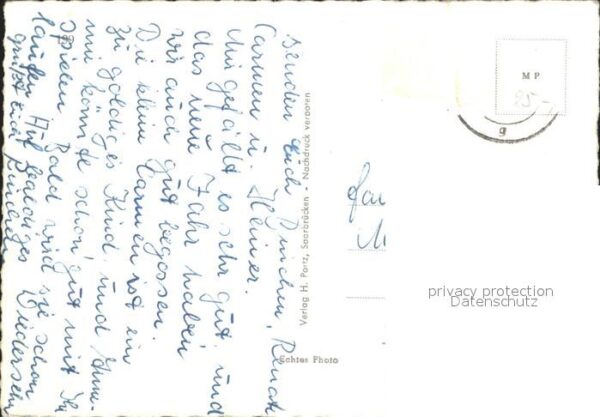 senden Euch Burschen, Renate
Carmen u. Heiner.
Mir gefällt es sehr gut und
das neue Jahr haben
wir auch gut begossen.
Die kleine Carmen ist ein
zu goldiges Kind, und
mir könnte schon gut mit
spielen. Bald wird sie schon
laufen. Auf baldiges Wiedersehn
grüßt Euch
Verlag H. Portz, Saarbrücken - Nachdruck verboten
Echtes Photo
M P
25.-
g
Fam
privacy protection
Datenschutz